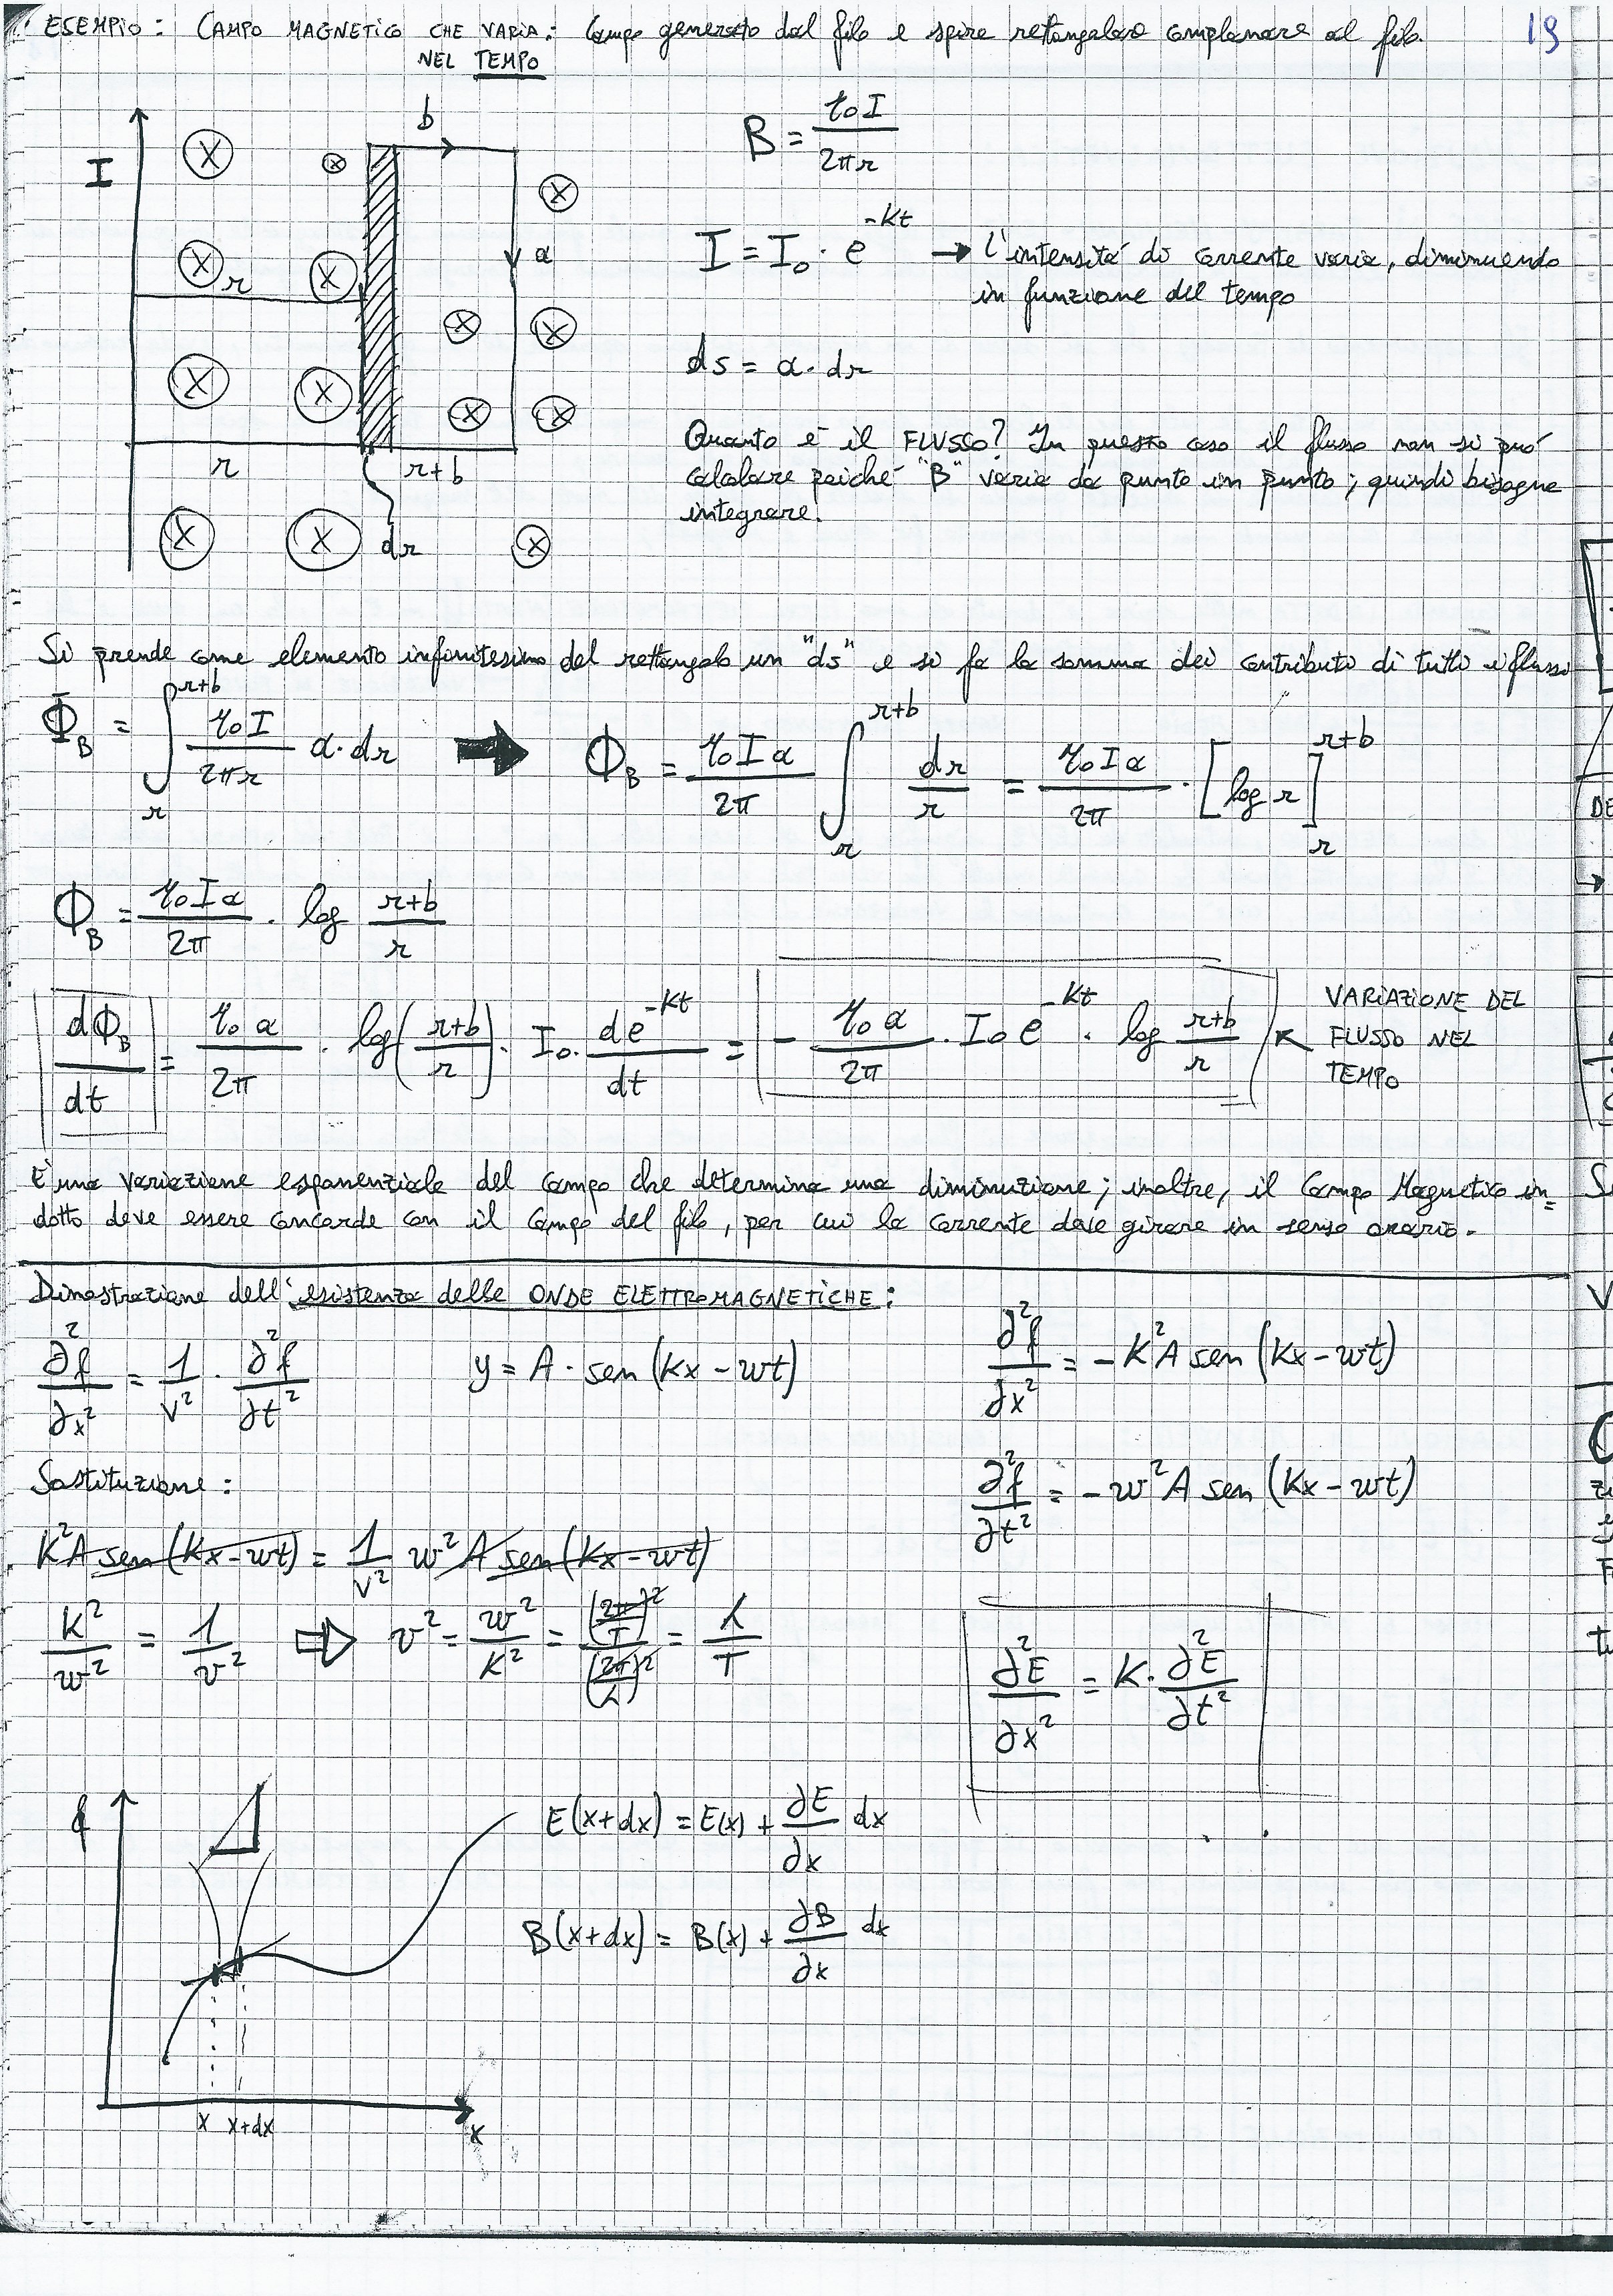 ESEMPIO: CAMPO MAGNETICO CHE VARIA: Campo generato dal filo e spira rettangolare complanare al filo. 19
NEL TEMPO
I
b
a
r
r
r+b
dr
B = γ₀I / 2πr
I = I₀ · e^-Kt → l'intensità di corrente varia, diminuendo
in funzione del tempo
ds = a · dr
Quanto è il FLUSSO? In questo caso il flusso non si può
calcolare poiché "B" varia da punto in punto; quindi bisogna
integrare.
Si prende come elemento infinitesimo del rettangolo un "ds" e si fa la somma dei contributi di tutti i flussi
Φ_B = ∫_r^r+b γ₀I / 2πr a · dr ➡ Φ_B = γ₀Ia / 2π ∫_r^r+b dr / r = γ₀Ia / 2π · [log r]_r^r+b
Φ_B = γ₀Ia / 2π · log r+b / r
dΦ_B / dt = γ₀a / 2π · log(r+b / r) · I₀ · de^-Kt / dt = - γ₀a / 2π · I₀e^-Kt · log r+b / r ↖ VARIAZIONE DEL
FLUSSO NEL
TEMPO
È una variazione esponenziale del campo che determina una diminuzione; inoltre, il Campo Magnetico in=
dotto deve essere concorde con il campo del filo, per cui la corrente deve girare in senso orario.
Dimostrazione dell'esistenza delle ONDE ELETTROMAGNETICHE:
∂²f / ∂x² = 1 / v² · ∂²f / ∂t²
y = A · sen (Kx - wt)
∂²f / ∂x² = -K²A sen (Kx - wt)
∂²f / ∂t² = -w²A sen (Kx - wt)
Sostituzione:
K²A sen (Kx - wt) = 1 / v² w²A sen (Kx - wt)
K² / w² = 1 / v² ⇒ v² = w² / K² = (2π / T)² / (2π / λ)² = λ / T
∂²E / ∂x² = K · ∂²E / ∂t²
f
E(x+dx) = E(x) + ∂E / ∂x dx
B(x+dx) = B(x) + ∂B / ∂x dx
x x+dx
x